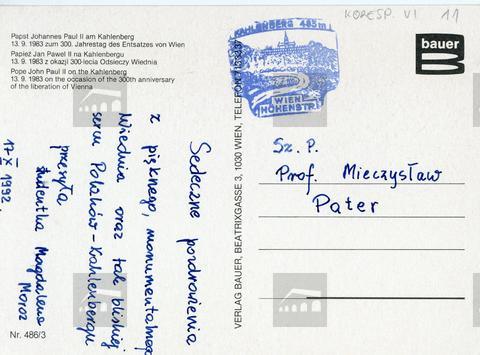 Papst Johannes Paul II am Kahlenberg
13. 9. 1983 zum 300. Jahrestag des Entsatzes von Wien
Papież Jan Paweł II na Kahlenbergu
13. 9. 1983 z okazji 300-lecia Odsieczy Wiednia
Pope John Paul II on the Kahlenberg
13. 9. 1983 on the occasion of the 300th anniversary
of the liberation of Vienna
KORESP. VI 11
KAHLENBERG 483m
WIEN
HÖHENSTR.
bauer
Sz. P.
Prof. Mieczysław
Pater
Sedeczne pozdrowienia
z pięknego, monumentalnego
Wiednia oraz tak bliskiej
sercu Polaków - Kahlenbergu
przesyła
studentka Magdalena
Moroz
17-X 1992.
VERLAG BAUER, BEATRIXGASSE 3, 1030 WIEN, TELEFON
Nr. 486/3